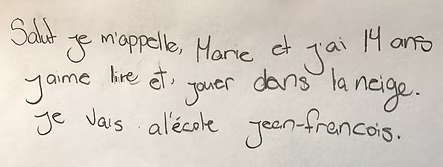 Salut je m'appelle, Marie et j'ai 14 ans
j'aime lire et, jouer dans la neige.
je vais al'école jean-francois.